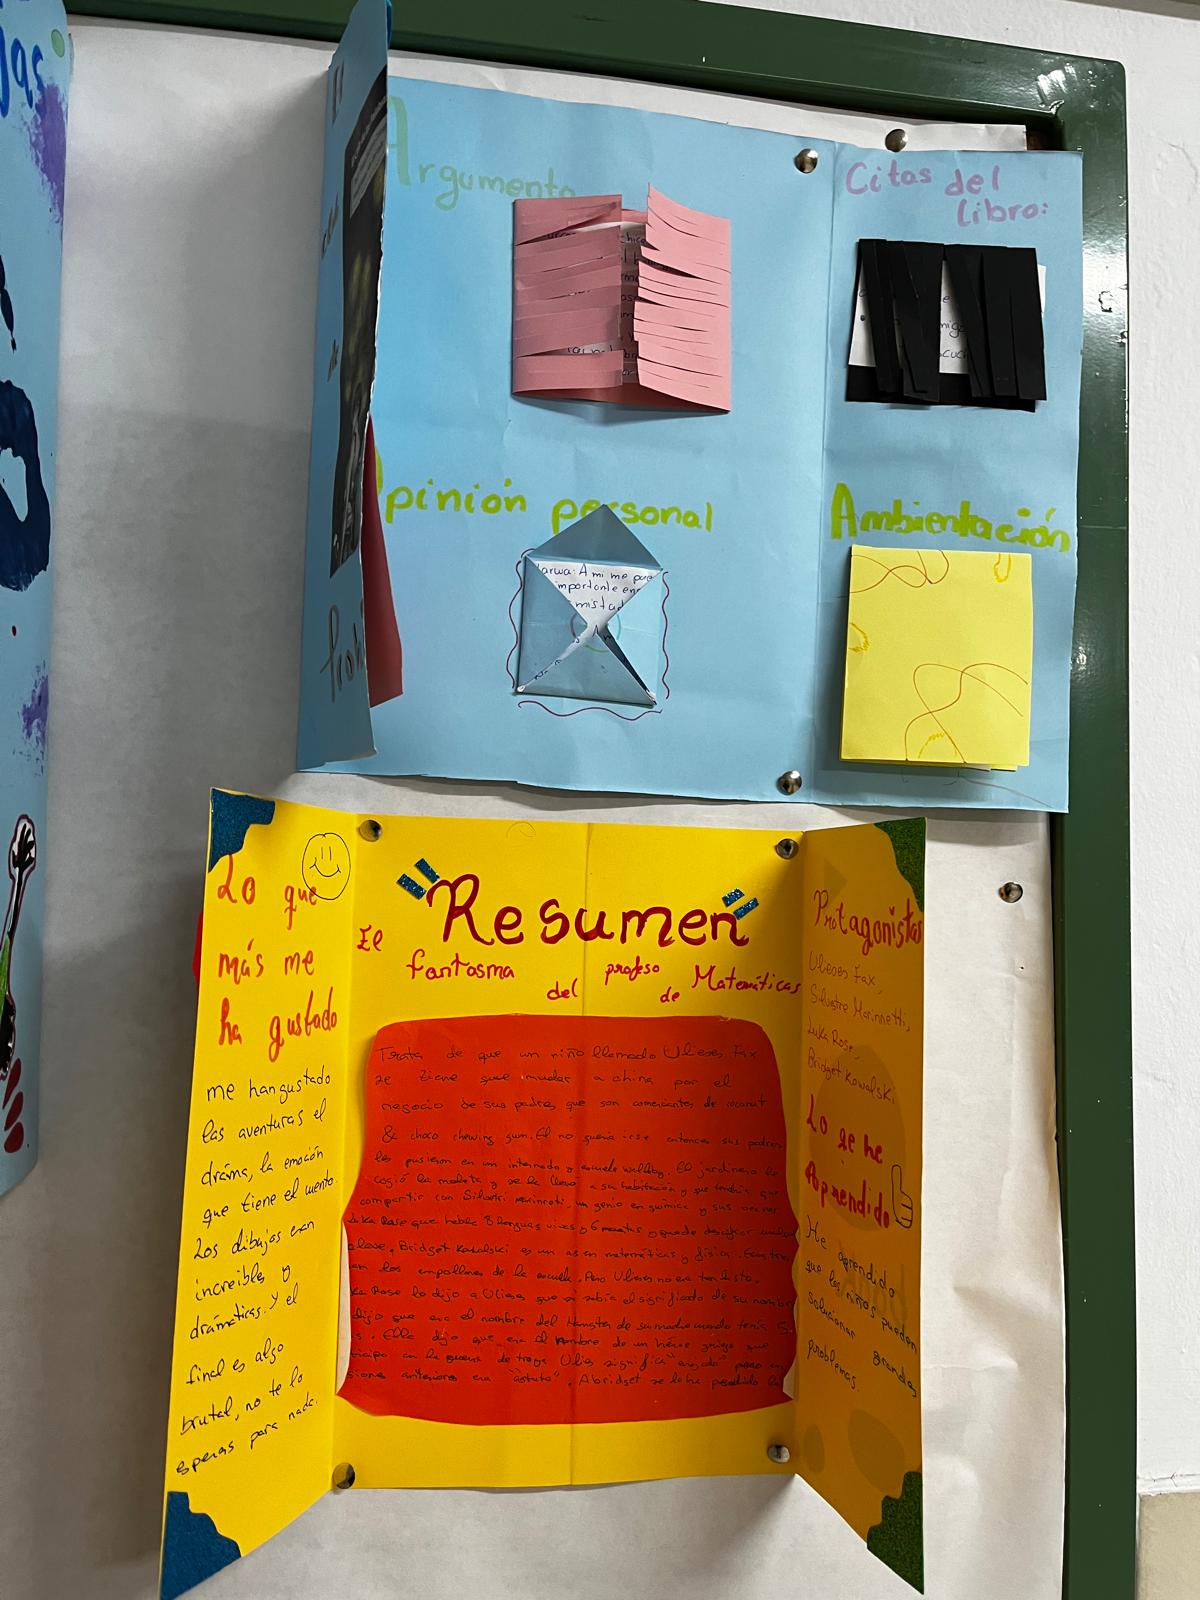 jas
Argumento
Citas del
libro:
Opinión personal
A mi me
importante en
mistad
Ambientación
Lo que
más me
ha gustado
me han gustado
las aventuras el
dráma, la emoción
que tiene el
Los dibujos eran
increibles y
dramáticas. Y el
final es algo
brutal, no te lo
esperas para nada.
Resumen
El fantasma del profeso de Matemáticas
Trata de que un niño llamado Ulises Fax
se tiene que mudar a china por el
negocio de sus padres que son comerciantes de coconut
& choco chewing gum. El no queria irse entonces sus padres
les pusieron en un internado y escuela wallaby. El jardinero le
cogió la maleta y se la llevó a su habitación y que tendria que
compartir con Silvestri marinneti, un genio en química y sus
Luka Rose que habla 8 lenguas vivas y 6 muertas y puede descifrar
clave. Bridget Kowalski es un as en matemáticas y física.
los empollones de la escuela. Pero Ulises no era tan listo.
Rose lo dijo a Ulises que si sabia el significado de su nombre
dijo que era el nombre del Hamster de su madre cuando tenia 5
Ella dijo que era el nombre de un héroe griego que
en la guerra de troya Ulises significa "enojado" pero
anteriores era "astuto". A bridget se le ha perdido la
Protagonistas
Ulises Fax,
Silvestre Marinnetti,
Luka Rose,
Bridget Kowalski
Lo que he
Aprendido
He aprendido
que los niños pueden
solucionar grandes
problemas.